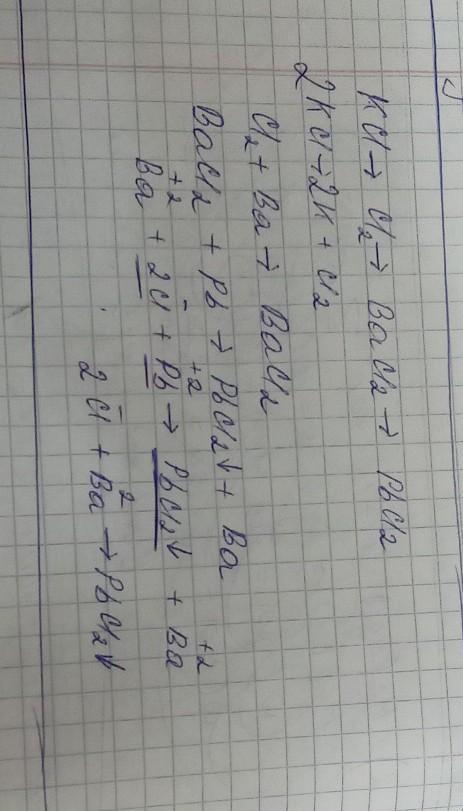 KCl → Cl₂ → BaCl₂ → PbCl₂
2KCl → 2K + Cl₂
Cl₂ + Ba → BaCl₂
BaCl₂ + Pb → PbCl₂↓ + Ba
Ba⁺² + 2Cl⁻ + Pb⁺² → PbCl₂↓ + Ba⁺²
2Cl⁻ + Ba² → PbCl₂↓